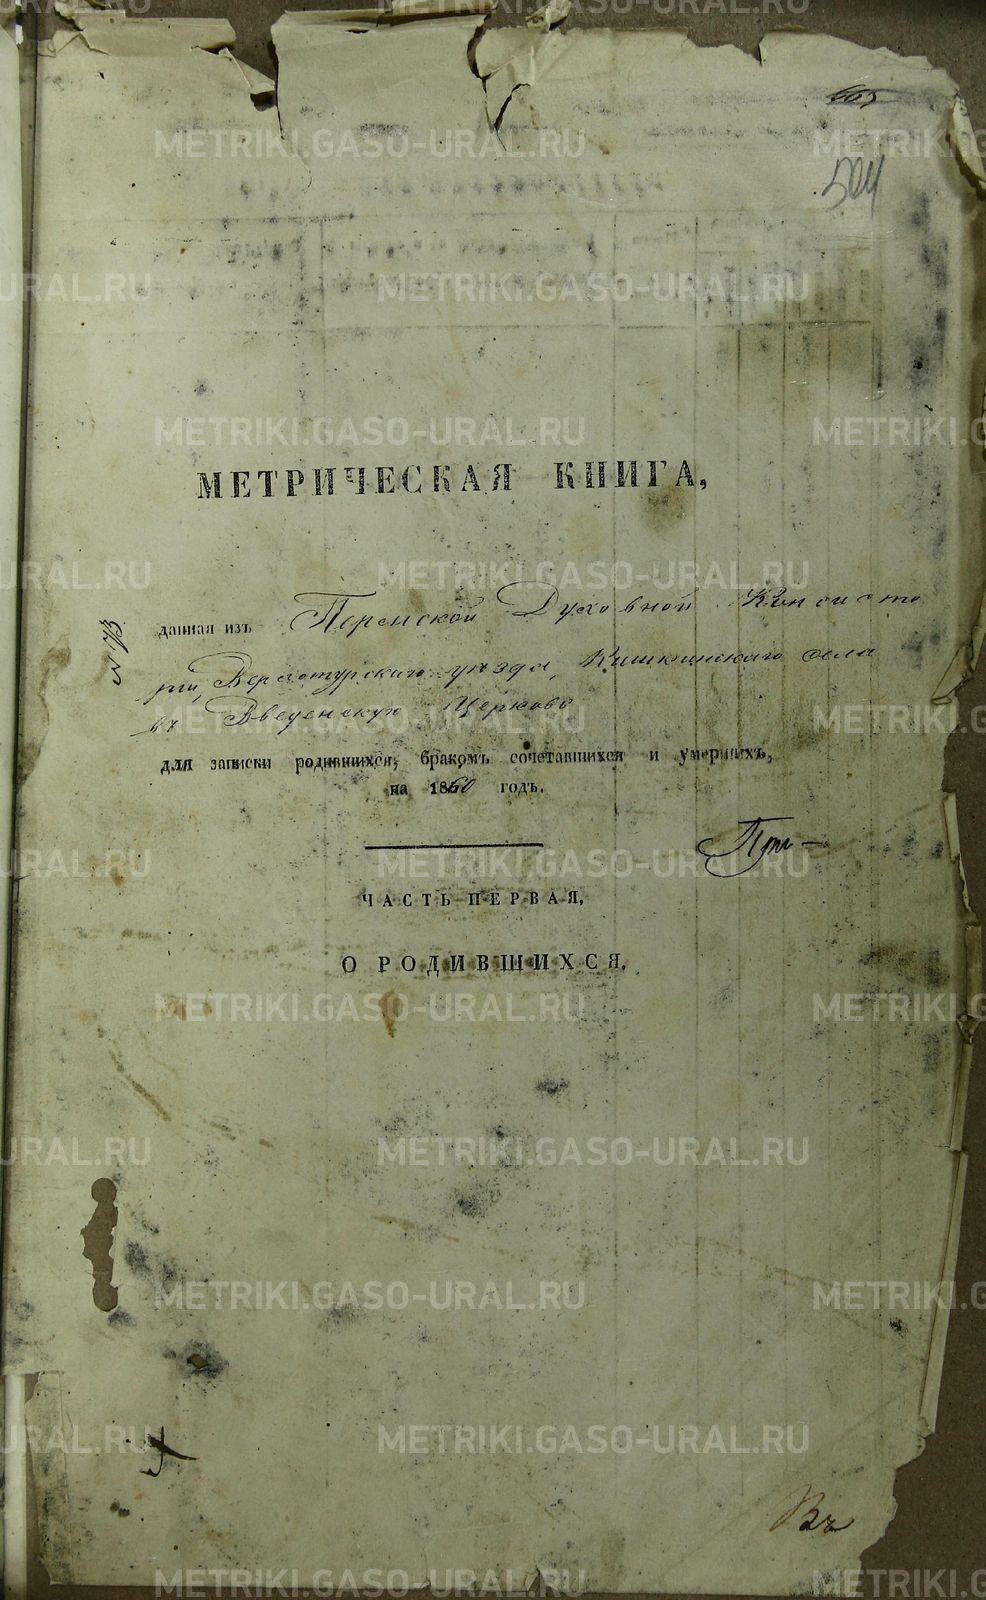 665
504
МЕТРИЧЕСКАЯ КНИГА,
данная изъ Пермской Духовной Консисто
рiи, Верхотурскаго уѣзда, Кишкинскаго села
въ Введенскую Церковь
№ 73
для записки родившихся, бракомъ сочетавшихся и умершихъ,
на 1860 годъ.
ЧАСТЬ ПЕРВАЯ,
О РОДИВШИХСЯ.
METRIKI.GASO-URAL.RU